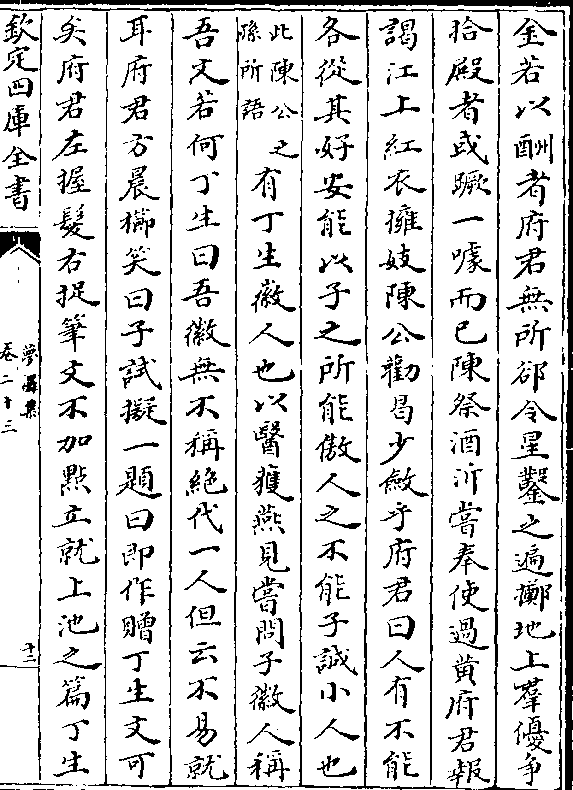 金若以酬者府君無所郤令星鑿之遍擲地上羣優争
拾殿者或蹶一噱而已陳祭酒沂嘗奉使過黄府君報
謁江上紅衣擁妓陳公勸曷少斂乎府君曰人有不能
各從其好安能以子之所能傲人之不能子誠小人也
此陳公之
孫所語
有丁生徽人也以醫獲燕見嘗問子徽人稱
吾文若何丁生曰吾徽無不稱絶代一人但云不易就
耳府君方晨櫛笑曰子試擬一題曰即作贈丁生文可
矣府君左握髮右捉筆文不加點立就上池之篇丁生
欽定四庫全書
卷二十三
十二